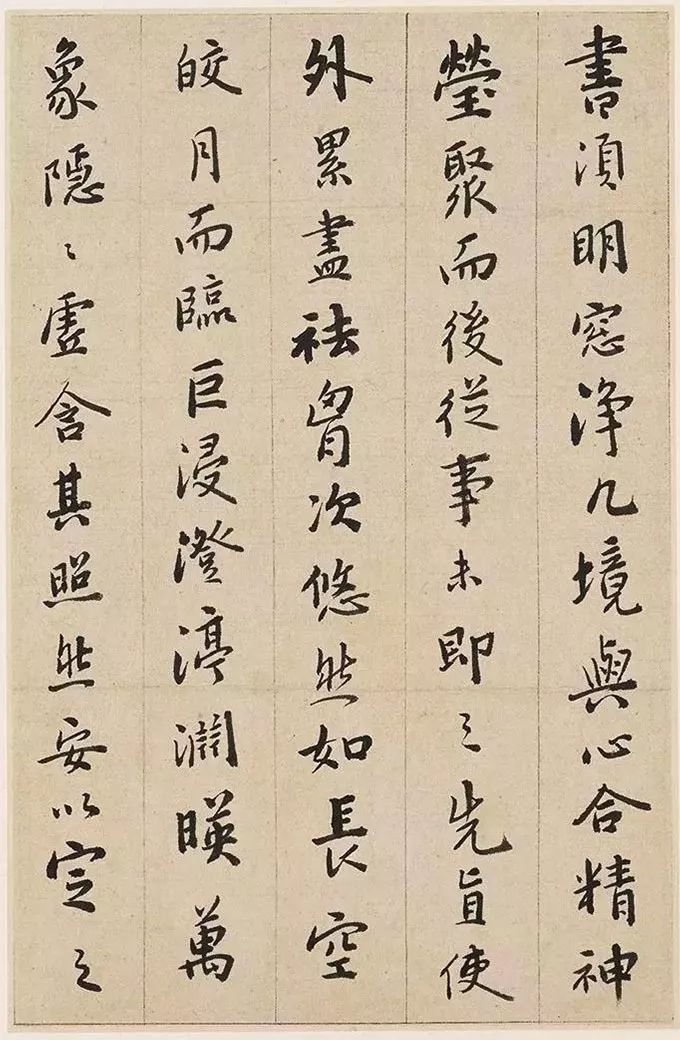 書須明窓淨几境與心合精神
瑩聚而後從事未即之先宜使
外累盡祛胷次悠然如長空
皎月而臨巨浸澄渟暎萬
象隱〻虛含其照然安以定之